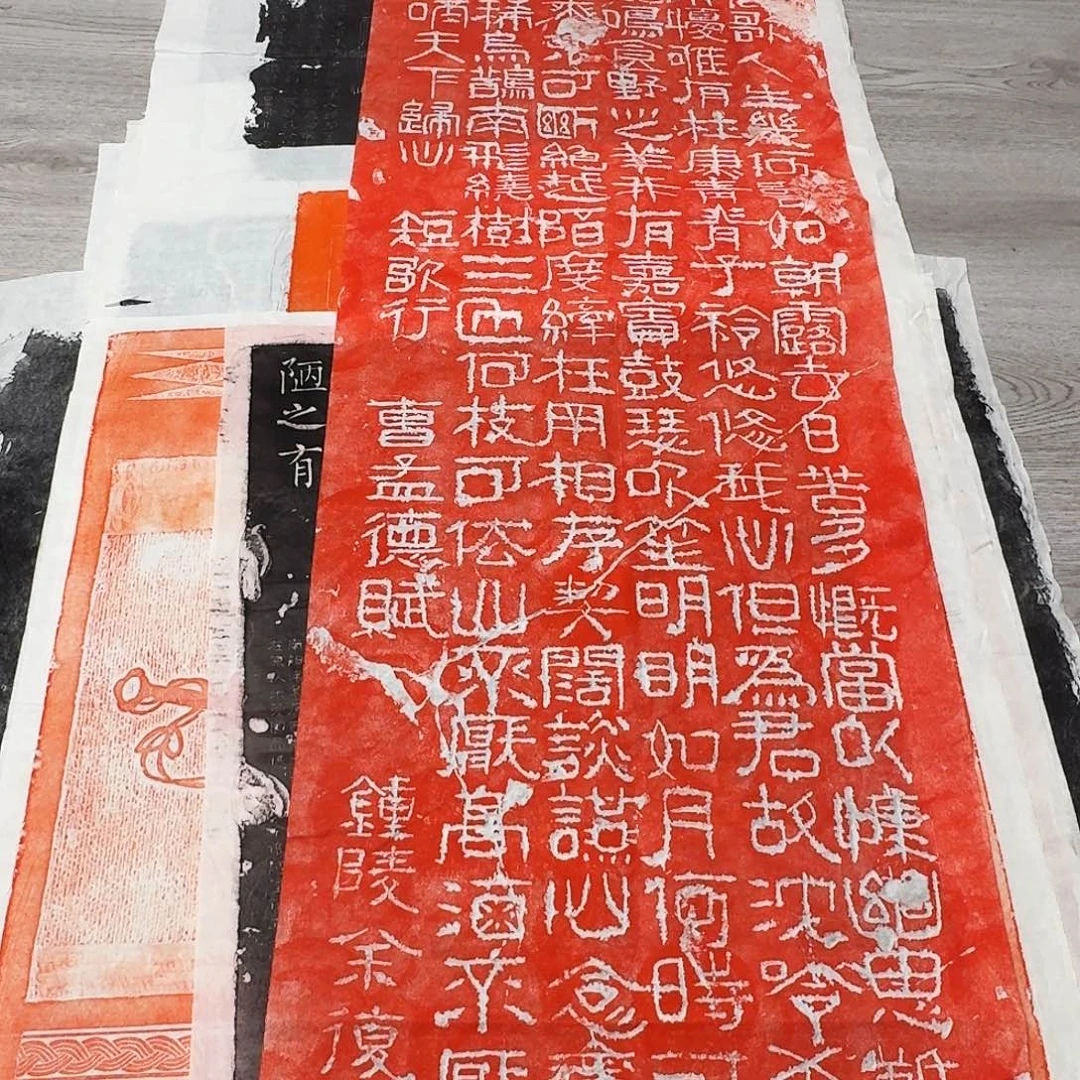 歌人生幾何如朝露去日苦多慨當以慷幽思
唯有杜康青青子衿悠悠我心但為君故沈吟
鳴食野之苹我有嘉賓鼓瑟吹笙明明如月何時可
來不可斷絕越陌度阡枉用相存契闊談讌心念舊
稀烏鵲南飛繞樹三匝何枝可依山不厭高海不厭
哺天下歸心 短歌行 曹孟德賦 鍾陵余復
陋之有